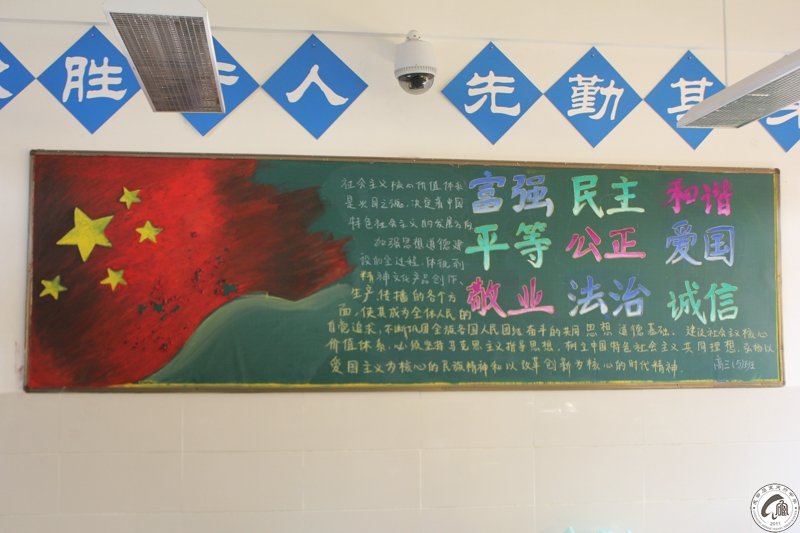 胜 人 先 勤
社会主义核心价值体系
是兴国之魂,决定着中国
特色社会主义的发展方向
加强思想道德建
设的全过程,体现到
精神文化产品创作、
生产传播的各个方
面,使其成为全体人民的
自觉追求,不断巩固全族各国人民团结奋斗的共同思想道德基础。建设社会主义核心
价值体系,必须坚持马克思主义指导思想,树立中国特色社会主义共同理想,弘扬以
爱国主义为核心的民族精神和以改革创新为核心的时代精神。
富强 民主 和谐
平等 公正 爱国
敬业 法治 诚信
高三
2011